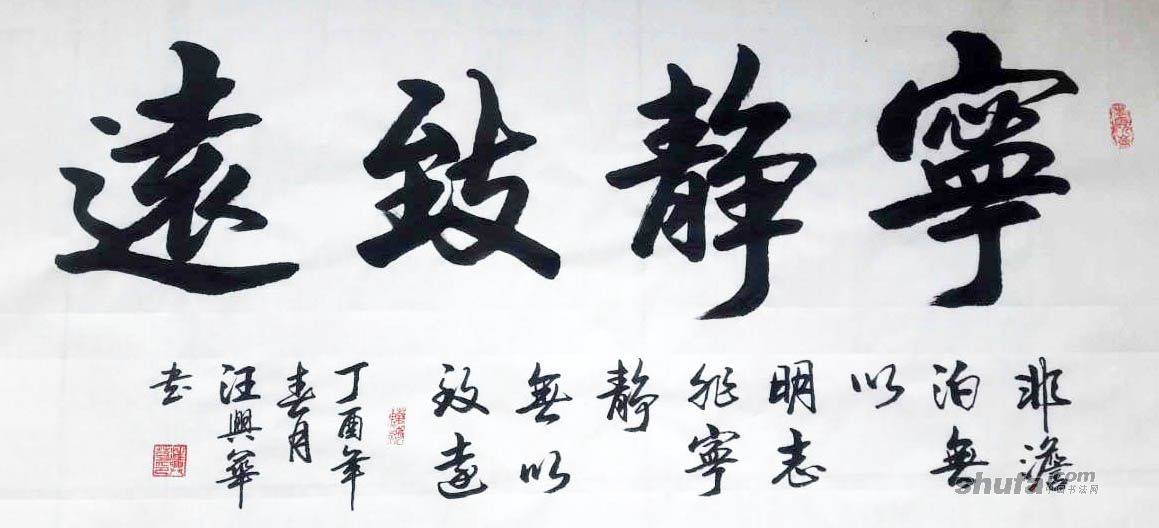 寧靜致遠
非澹
泊無
以
明志
非寧
靜
無以
致遠
丁酉年
春月
汪興華
书
shufa.com
中国书法网